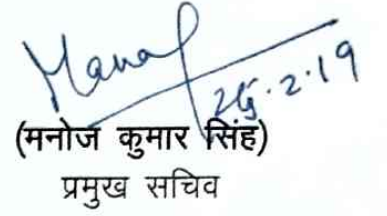 Manoj
26.2.19
(मनोज कुमार सिंह)
प्रमुख सचिव